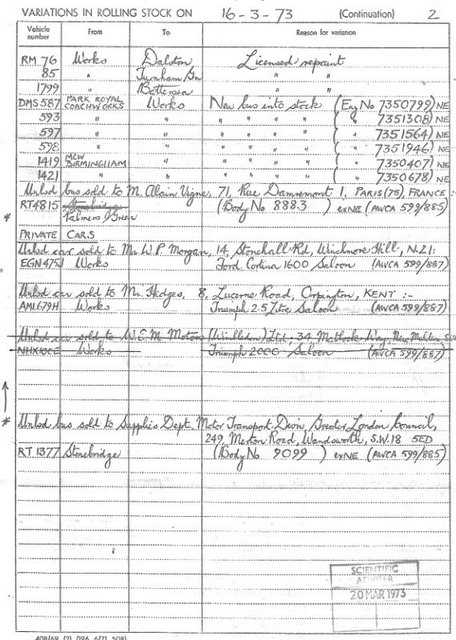 VARIATIONS IN ROLLING STOCK ON 16-3-73 (Continuation) 2
Vehicle number From To Reason for variance
RM 76 Works Dalston Licensed repaint
85 " Turnham Gn " "
1799 " Battersea " "
DMS 587 PARK ROYAL COACHWORKS Works New bus into stock (Eng No 7350799) NE
593 " " " " " " ( " 7351308) NE
597 " " " " " " ( " 7351564) NE
598 " " " " " " ( " 7351946) NE
1419 MCW BIRMINGHAM " " " " " ( " 7350407) NE
1421 " " " " " " ( " 7350678) NE
Unlsd bus sold to M. Alain Vigne, 71, Rue 1, PARIS (75), FRANCE :-
* RT 4815 Stonebridge (Body No 8883) exNE (AWCA 599/885)
Palmers Green
PRIVATE CARS
Unlsd car sold to Mr W.P. Morgan, 14, Stonehall Rd, Winchmore Hill, N.21.
EGN 475J Works Ford Cortina 1600 Saloon (AWCA 599/887)
Unlsd car sold to Mr Hedges, 8, Lucerne Road, Orpington, KENT :-
AML 679H Works Triumph 2.5 Litre Saloon (AWCA 599/887)
Unlsd car sold to W.S.M. Motors (Wimbledon) Ltd, 34, Way, New Malden,
Works Triumph 2000 Saloon (AWCA 599/887)
* Unlsd bus sold to Supplies Dept, Motor Transport Divn, Greater London Council,
249, Merton Road, Wandsworth, S.W.18 5ED
RT 1377 Stonebridge (Body No 9099) exNE (AWCA 599/885)
SCIENTIFIC
ADVISER
20 MAR 1973